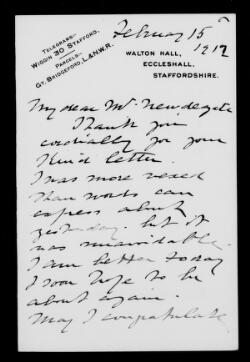 TELEGRAMS:-
WIGGIN 30 STAFFORD.
PARCELS:-
GT. BRIDGEFORD, L.&N.W.R.
February 15
1912
WALTON HALL,
ECCLESHALL,
STAFFORDSHIRE.
My dear Mr. Newdegate
Thank you
cordially for your
kind letter.
I was more vexed
than words can
express about
yesterday. but it
was unavoidable.
I am better today
I soon hope to be
about again.
May I congratulate